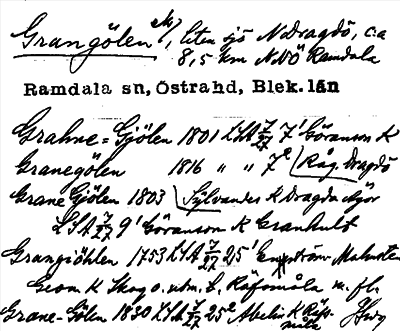 Grangölen, liten sjö N Dragdö, c:a
8,5 km NNÖ Ramdala
Ramdala sn, Östrahd, Blek.län
Grahne=Gjölen 1801 LSA 7/27 7¹ Göranson K
Granegölen 1816 " " 7² Råg. Dragdö
Grane Gjölen 1803 Sylvander K Dragdu Ägor
LSA 7/27 9¹ Göranson K Granhult
Grangiöhlen 1753 LSA 7/27 25¹
Geom K Skog o. utm. t. Räfsmåla m. fl.
Grane-Gölen 1830 LSA 7/27 25² Abelin K Räfsmåla